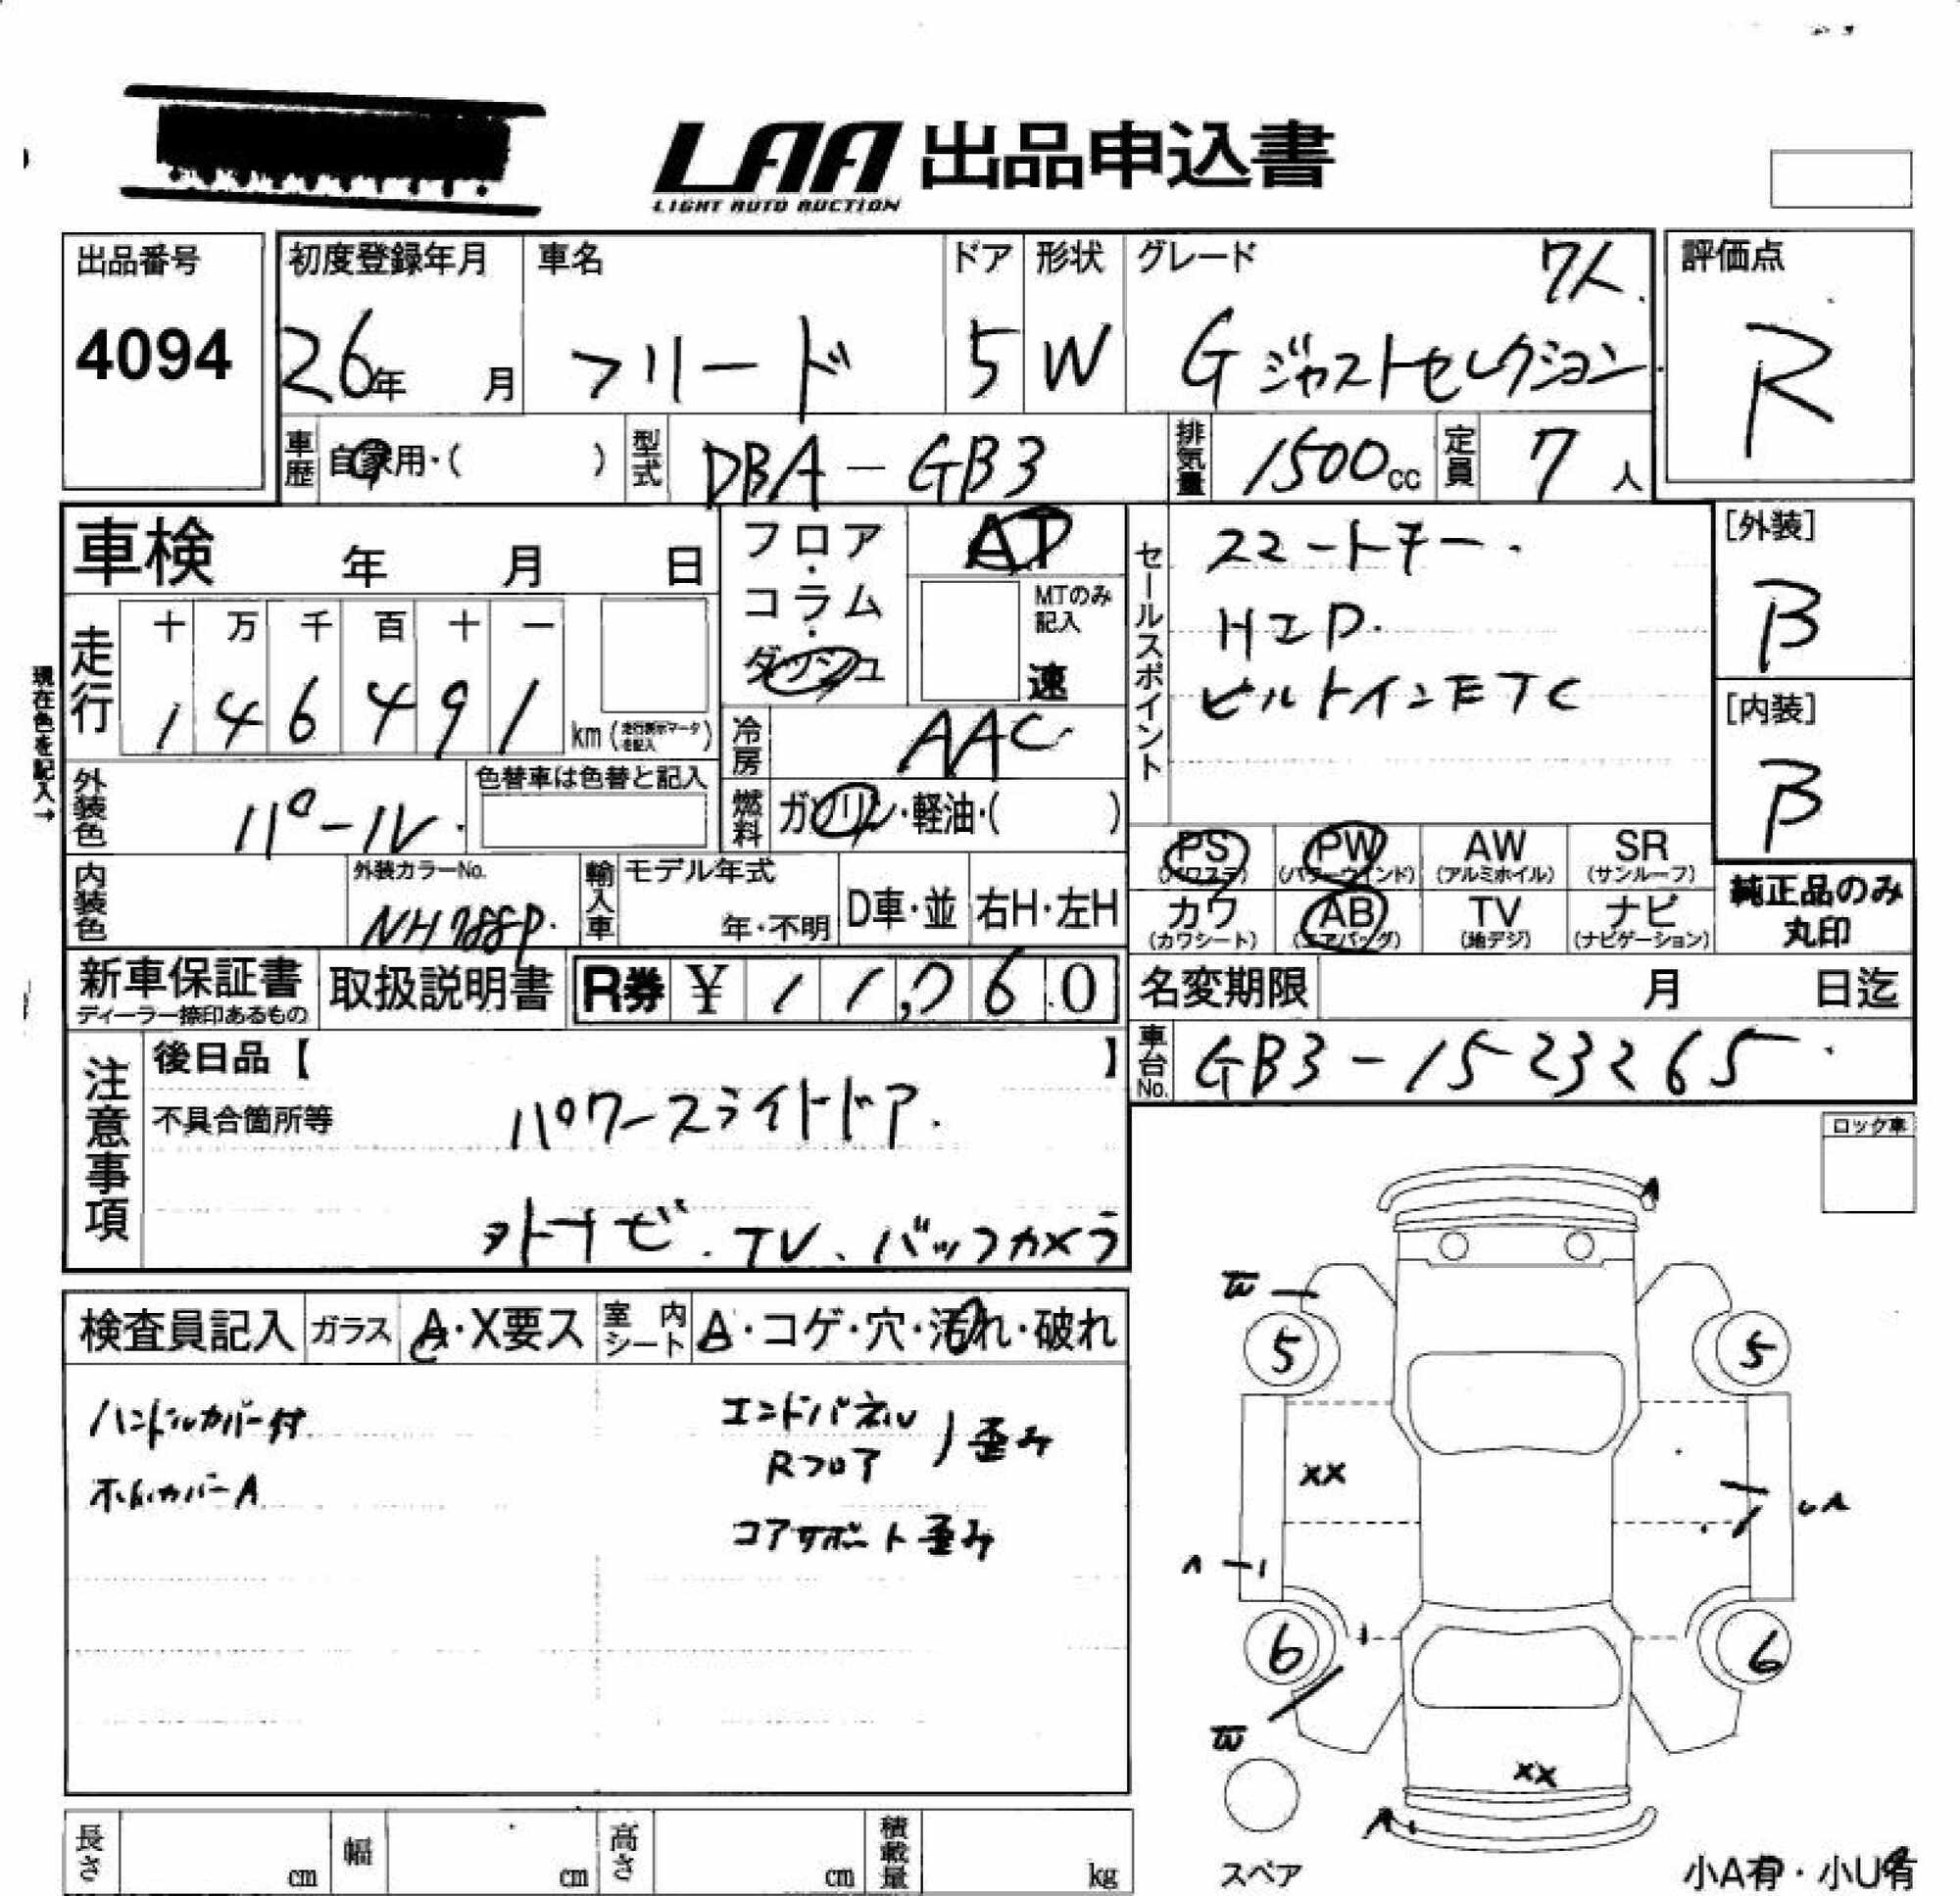 LAA 出品申込書
LIGHT AUTO AUCTION
出品番号
4094
初度登録年月
26年 月
車名
フリード
ドア
5
形状
W
グレード
7人.
G ジャストセレクション
評価点
R
車歴 自家用・( )
型式 DBA-GB3
排気量 1500cc
定員 7人
車検 年 月 日
フロア・コラム・ダッシュ
AT
MTのみ記入
速
走行
十 万 千 百 十 一
1 4 6 4 9 1 km (走行表示マークを記入)
現在色を記入→
冷房 AAC
外装色 パール.
色替車は色替と記入
燃料 ガソリン・軽油・( )
内装色
外装カラーNo.
NH788P.
輸入車
モデル年式
年・不明
D車・並
右H・左H
セールスポイント
スマートキー.
HID.
ビルトインETC
[外装]
B
[内装]
B
PS (パワステ)
PW (パワーウインド)
AW (アルミホイル)
SR (サンルーフ)
カワ (カワシート)
AB (エアバッグ)
TV (地デジ)
ナビ (ナビゲーション)
純正品のみ
丸印
新車保証書
ディーラー捺印あるもの
取扱説明書
R券 ¥ 11,760
名変期限 月 日迄
車台No. GB3-1523265.
注意事項
後日品【 】
不具合箇所等
パワースライドドア.
外ナビ. TV、バックカメラ
ロック車
検査員記入
ガラス
A・X要ス
室内シート
A・コゲ・穴・汚れ・破れ
ハンドルカバー付
ホイルカバーA
エンドパネル
Rフロア
歪み
コアサポート歪み
A
W
5
5
XX
UA
A
6
6
W
XX
A
スペア
小A有・小U有
長さ cm
幅 cm
高さ cm
積載量 kg